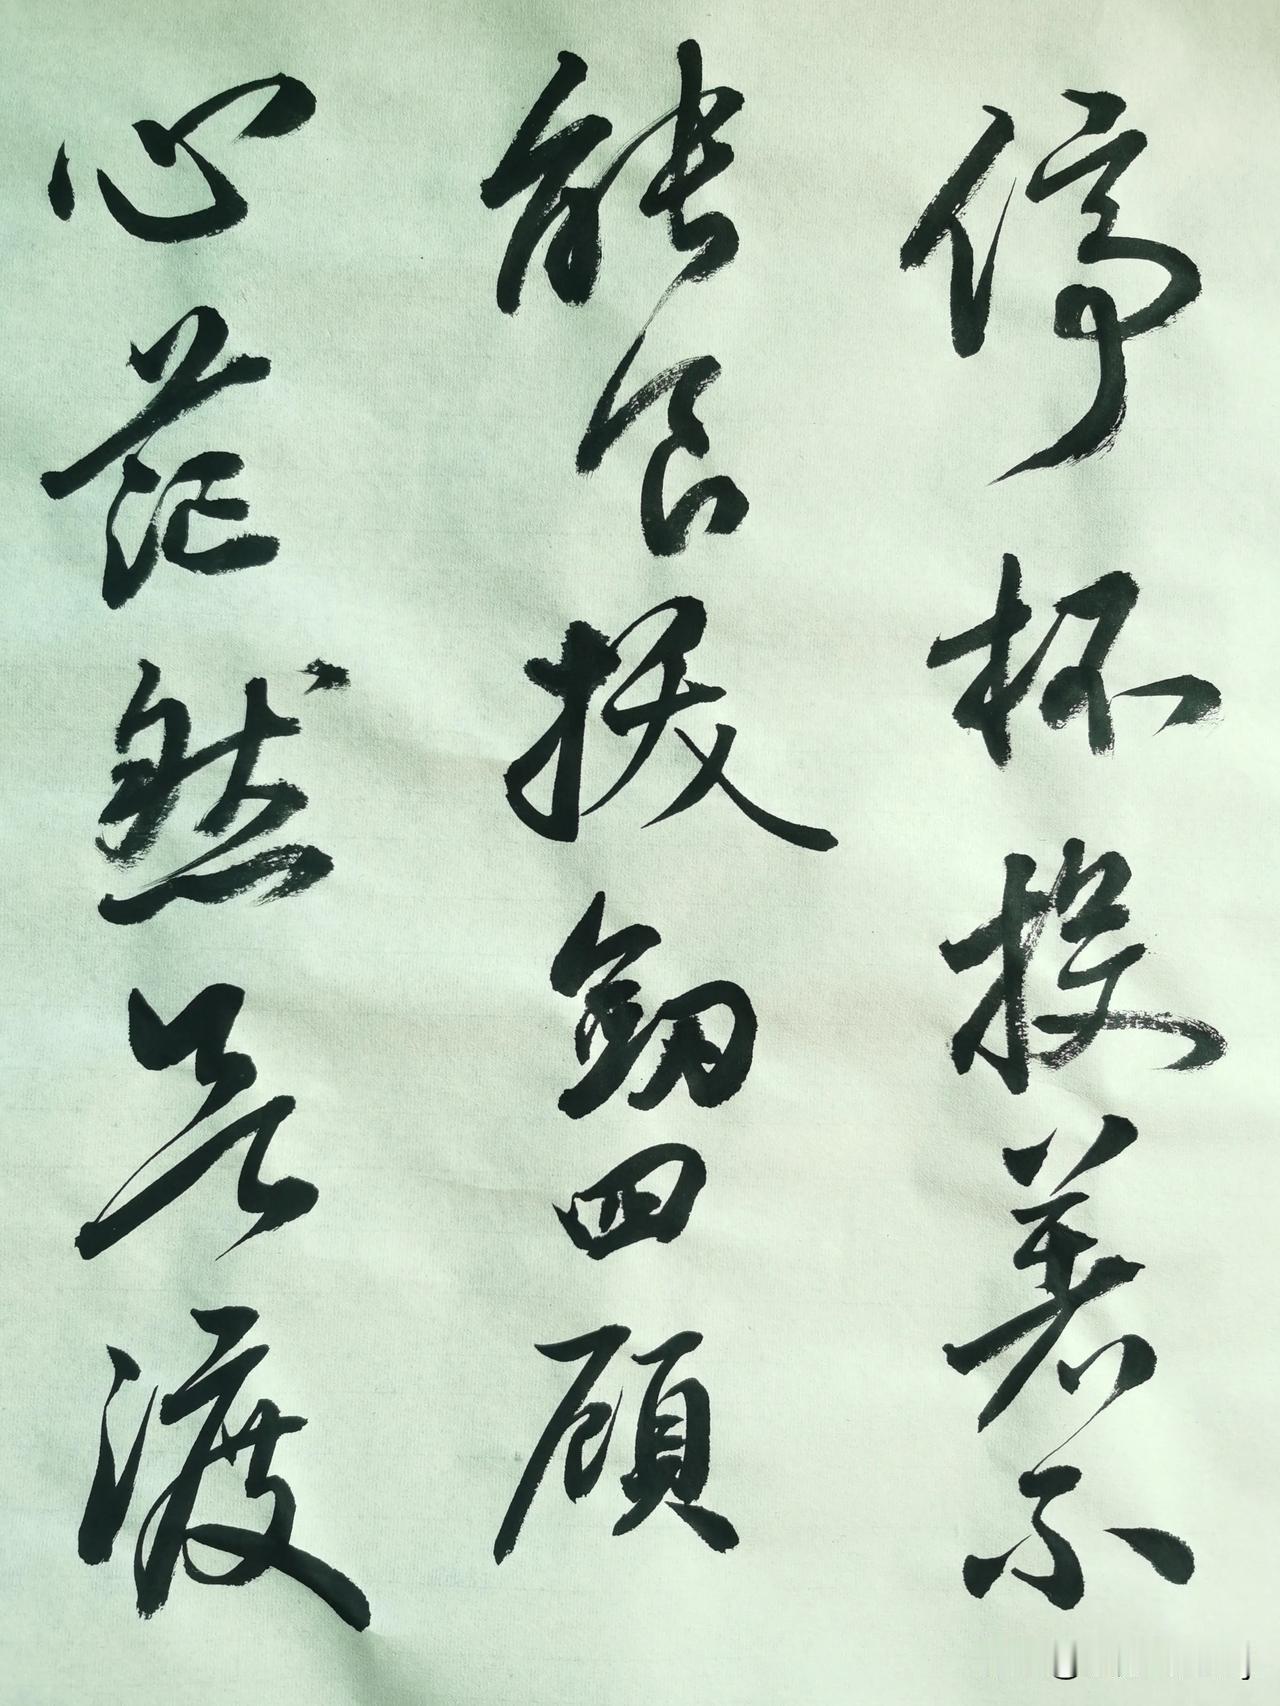 停杯投箸不
能食拔劍四顧
心茫然欲渡